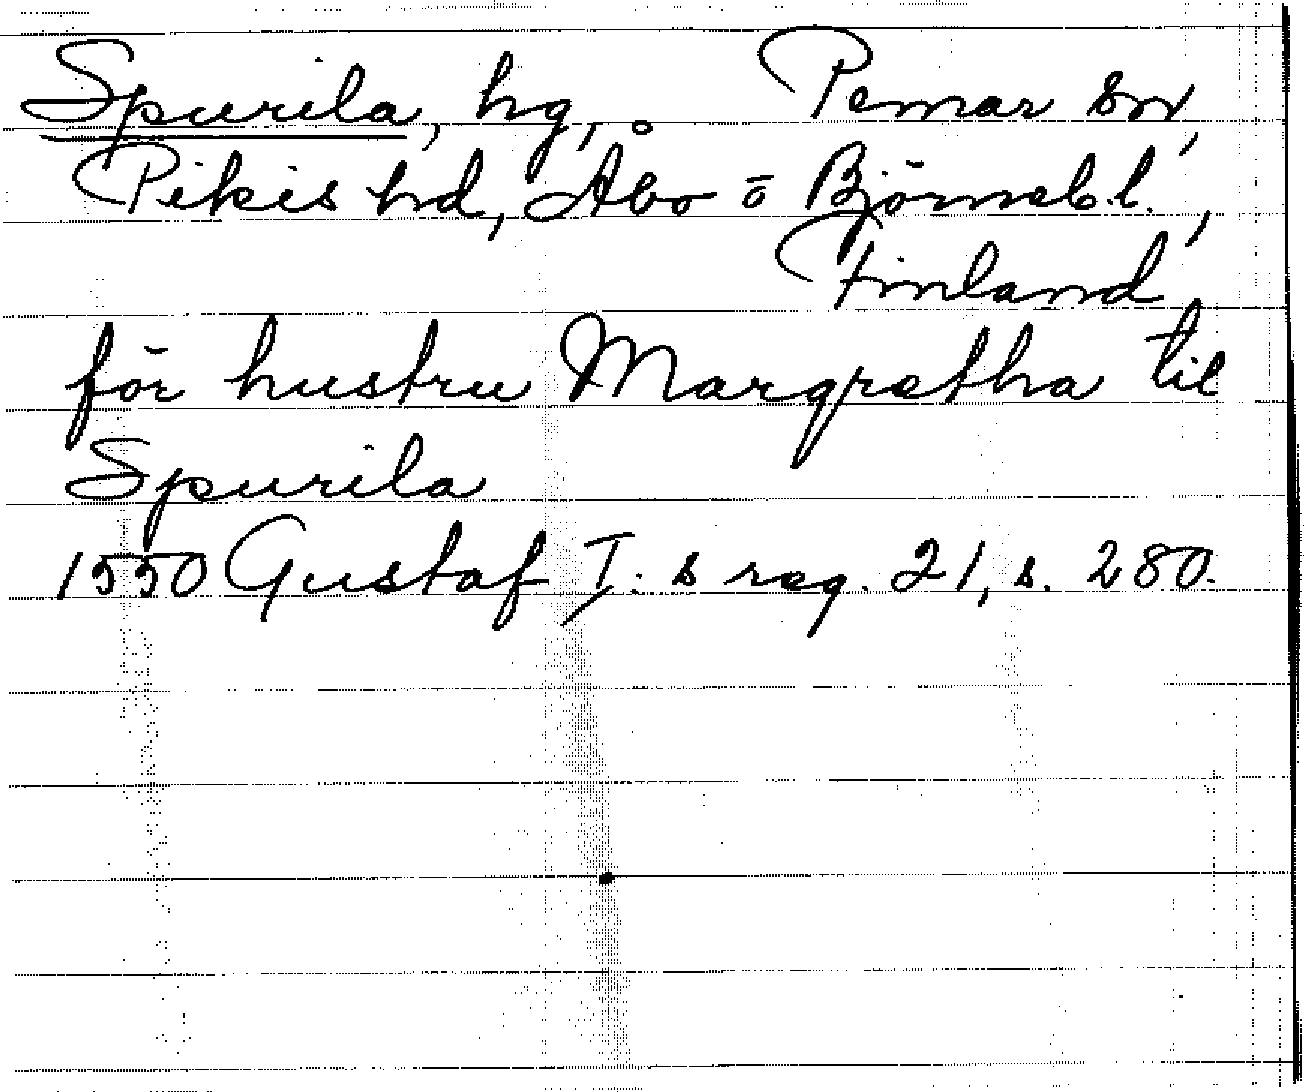 Spurila, hg, Pemar sn,
Pikis hd, Åbo o Björneb.l.,
Finland
för hustru Margretha til
Spurila
1550 Gustaf I:s reg. 21, s. 280.